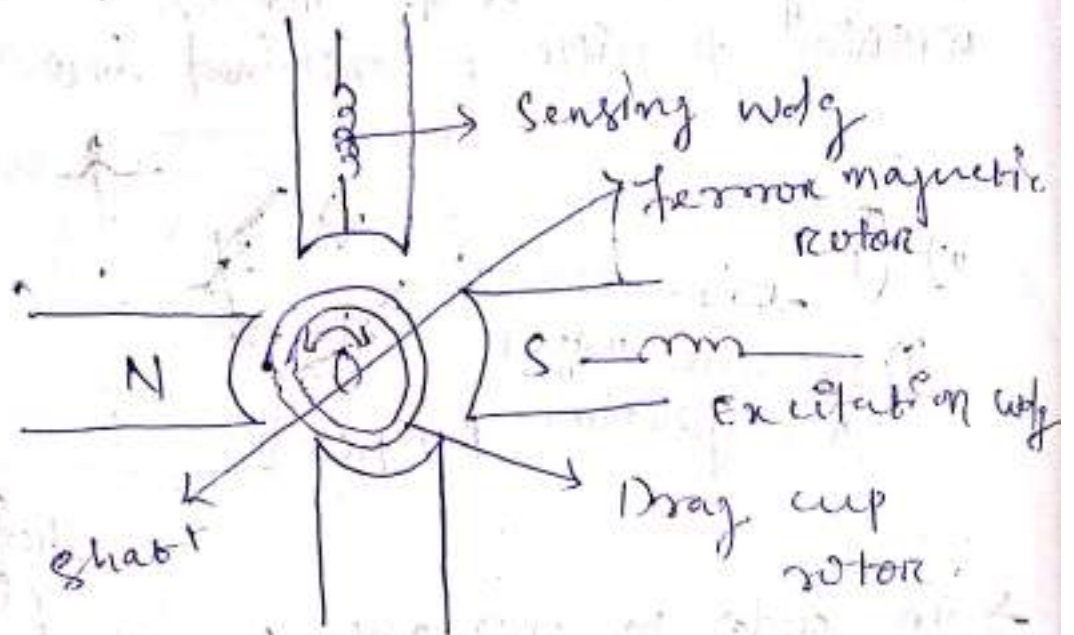 Sensing wdg
ferrox magnetic
rotor.
N
S
Excitation wdg
Drag cup
rotor.
shaft